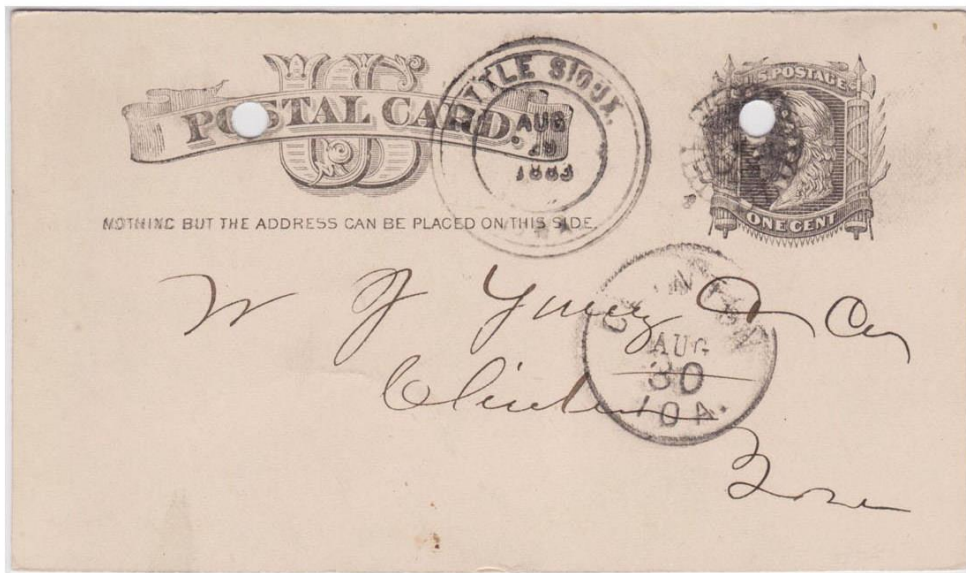 US
POSTAL CARD.
LITTLE SIOUX,
AUG
29
1883
U.S. POSTAGE
ONE CENT
NOTHING BUT THE ADDRESS CAN BE PLACED ON THIS SIDE.
W J Young & Co
Clinton
Iowa
AUG
30
10 A